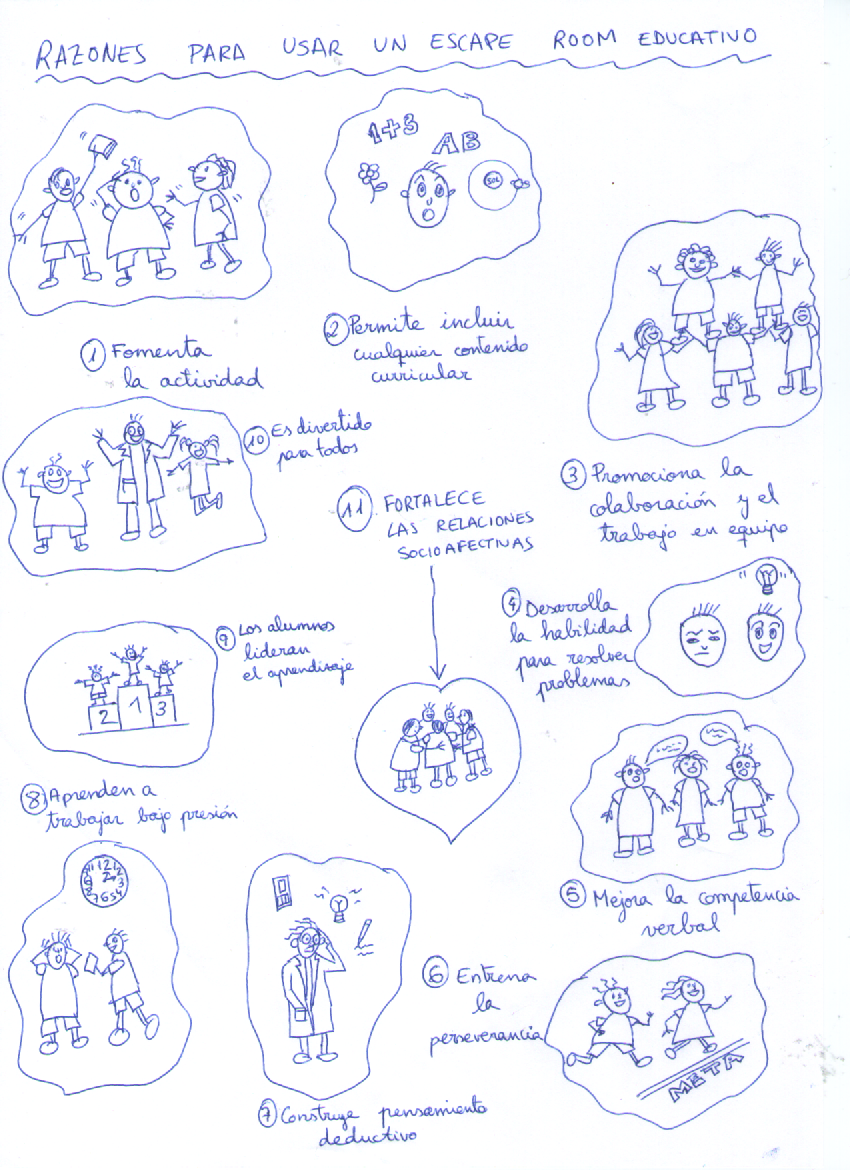 RAZONES PARA USAR UN ESCAPE ROOM EDUCATIVO
1+3
AB
SOL
1 Fomenta
la actividad
2 Permite incluir
cualquier contenido
curricular
3 Promociona la
colaboración y el
trabajo en equipo
4 Desarrolla
la habilidad
para resolver
problemas
5 Mejora la competencia
verbal
6 Entrena
la
perseverancia
META
7 Construye pensamiento
deductivo
8 Aprenden a
trabajar bajo presión
9 Los alumnos
lideran
el aprendizaje
2 1 3
10 Es divertido
para todos
11 FORTALECE
LAS RELACIONES
SOCIOAFECTIVAS